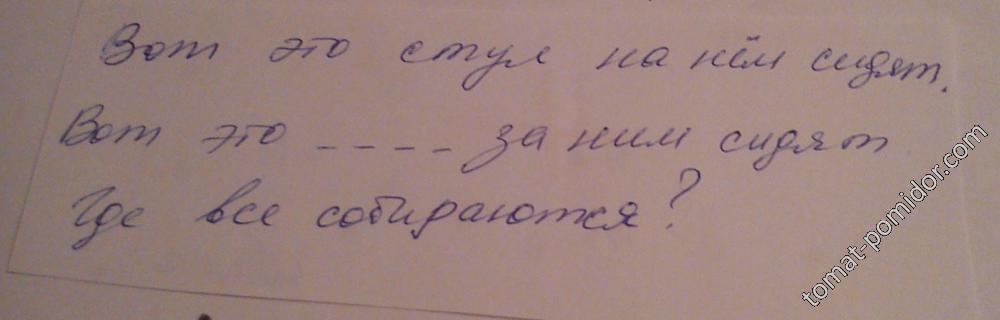 Вот это стул на нём сидят.
Вот это ---- за ним сидят
Где все собираются?
tomat-pomidor.com